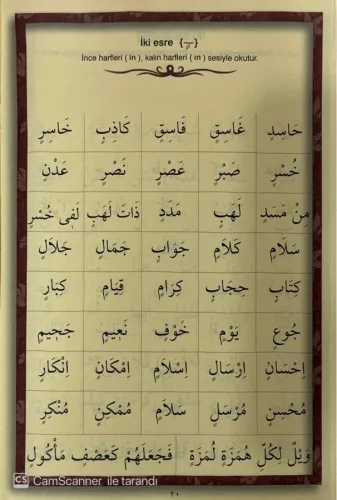 İki esre {ـٍ}
İnce harfleri ( in ), kalın harfleri ( ın ) sesiyle okutur.
حَاسِدٍ غَاسِقٍ فَاسِقٍ كَاذِبٍ خَاسِرٍ
خُسْرٍ صَبْرٍ عَصْرٍ نَصْرٍ عَدْنٍ
مِنْ مَسَدٍ لَهَبٍ مَدَدٍ ذَاتَ لَهَبٍ لَفِى خُسْرٍ
سَلَامٍ كَلَامٍ جَوَابٍ جَمَالٍ جَلَالٍ
كِتَابٍ حِجَابٍ كِرَامٍ قِيَامٍ كِبَارٍ
جُوعٍ يَوْمٍ خَوْفٍ نَعِيمٍ جَحِيمٍ
اِحْسَانٍ اِرْسَالٍ اِسْلَامٍ اِمْكَانٍ اِنْكَارٍ
مُحْسِنٍ مُرْسَلٍ سَلَامٍ مُمْكِنٍ مُنْكِرٍ
وَيْلٌ لِكُلِّ هُمَزَةٍ لُمَزَةٍ فَجَعَلَهُمْ كَعَصْفٍ مَأْكُولٍ
٢٠
CS CamScanner ile tarandı